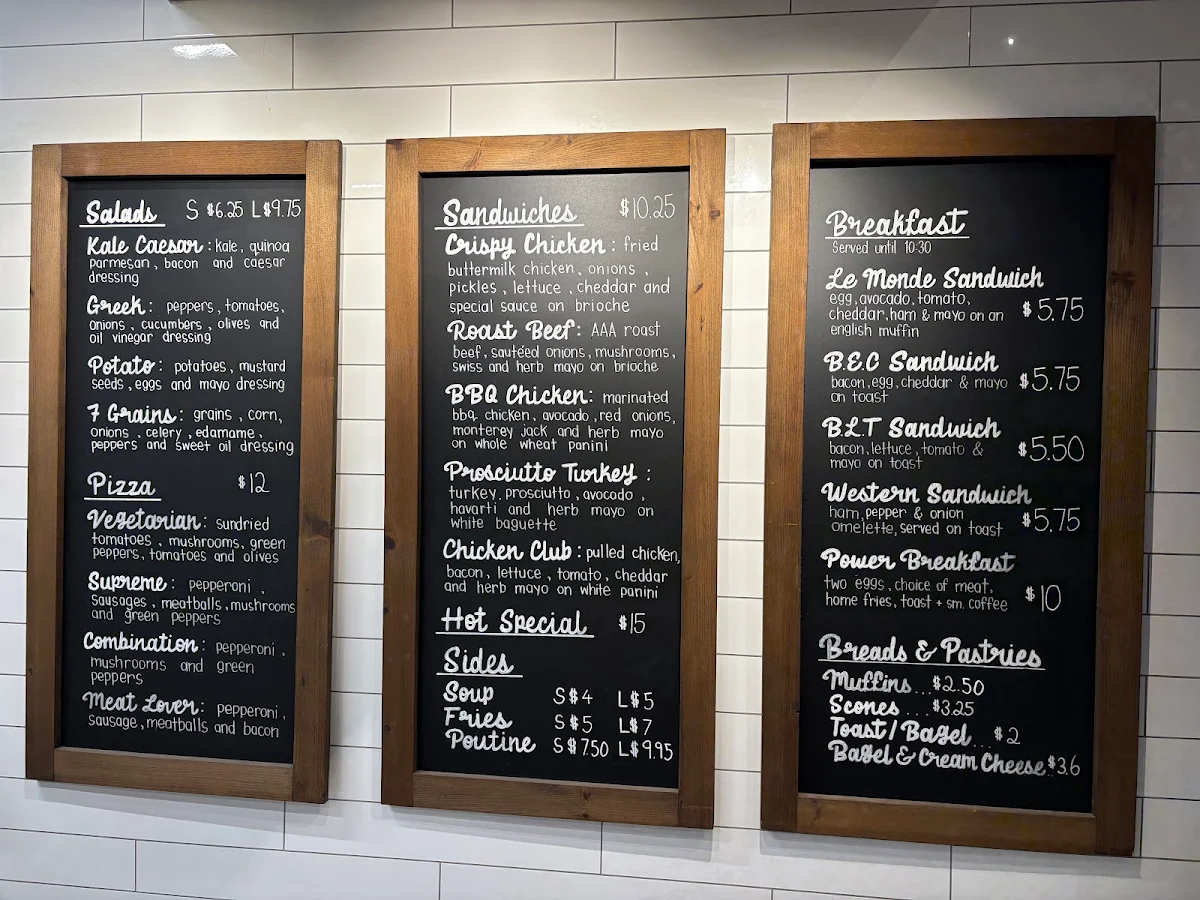 Salads S $6.25 L $9.75
Kale Caesar : kale, quinoa
parmesan, bacon and caesar
dressing
Greek : peppers, tomatoes,
onions, cucumbers, olives and
oil vinegar dressing
Potato : potatoes, mustard
seeds, eggs and mayo dressing
7 Grains : grains, corn,
onions, celery, edamame,
peppers and sweet oil dressing
Pizza $12
Vegetarian : sundried
tomatoes, mushrooms, green
peppers, tomatoes and olives
Supreme : pepperoni,
sausages, meatballs, mushrooms
and green peppers
Combination : pepperoni,
mushrooms and green
peppers
Meat Lover : pepperoni,
sausage, meatballs and bacon
Sandwiches $10.25
Crispy Chicken : fried
buttermilk chicken, onions,
pickles, lettuce, cheddar and
special sauce on brioche
Roast Beef : AAA roast
beef, sautéed onions, mushrooms,
swiss and herb mayo on brioche
BBQ Chicken : marinated
bbq chicken, avocado, red onions,
monterey jack and herb mayo
on whole wheat panini
Prosciutto Turkey :
turkey, prosciutto, avocado,
havarti and herb mayo on
white baguette
Chicken Club : pulled chicken,
bacon, lettuce, tomato, cheddar
and herb mayo on white panini
Hot Special $15
Sides
Soup S $4 L $5
Fries S $5 L $7
Poutine S $7.50 L $9.95
Breakfast
Served until 10:30
Le Monde Sandwich
egg, avocado, tomato,
cheddar, ham & mayo on an $5.75
english muffin
B.E.C Sandwich
bacon, egg, cheddar & mayo $5.75
on toast
B.L.T Sandwich
bacon, lettuce, tomato & $5.50
mayo on toast
Western Sandwich
ham, pepper & onion $5.75
omelette, served on toast
Power Breakfast
two eggs, choice of meat, $10
home fries, toast + sm. coffee
Breads & Pastries
Muffins... $2.50
Scones ... $3.25
Toast / Bagel ... $2
Bagel & Cream Cheese $3.6